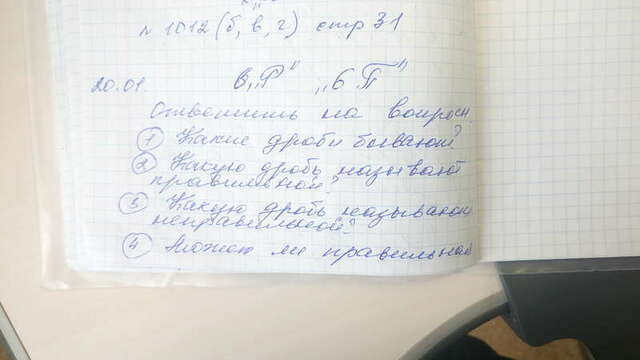 № 1012 (б, в, г) стр 31
20.01. в „Р" „6 П"
Ответить на вопросы
① Какие дроби бывают?
② Какую дробь называют
правильной?
③ Какую дробь называют
неправильной?
④ Может ли правильная